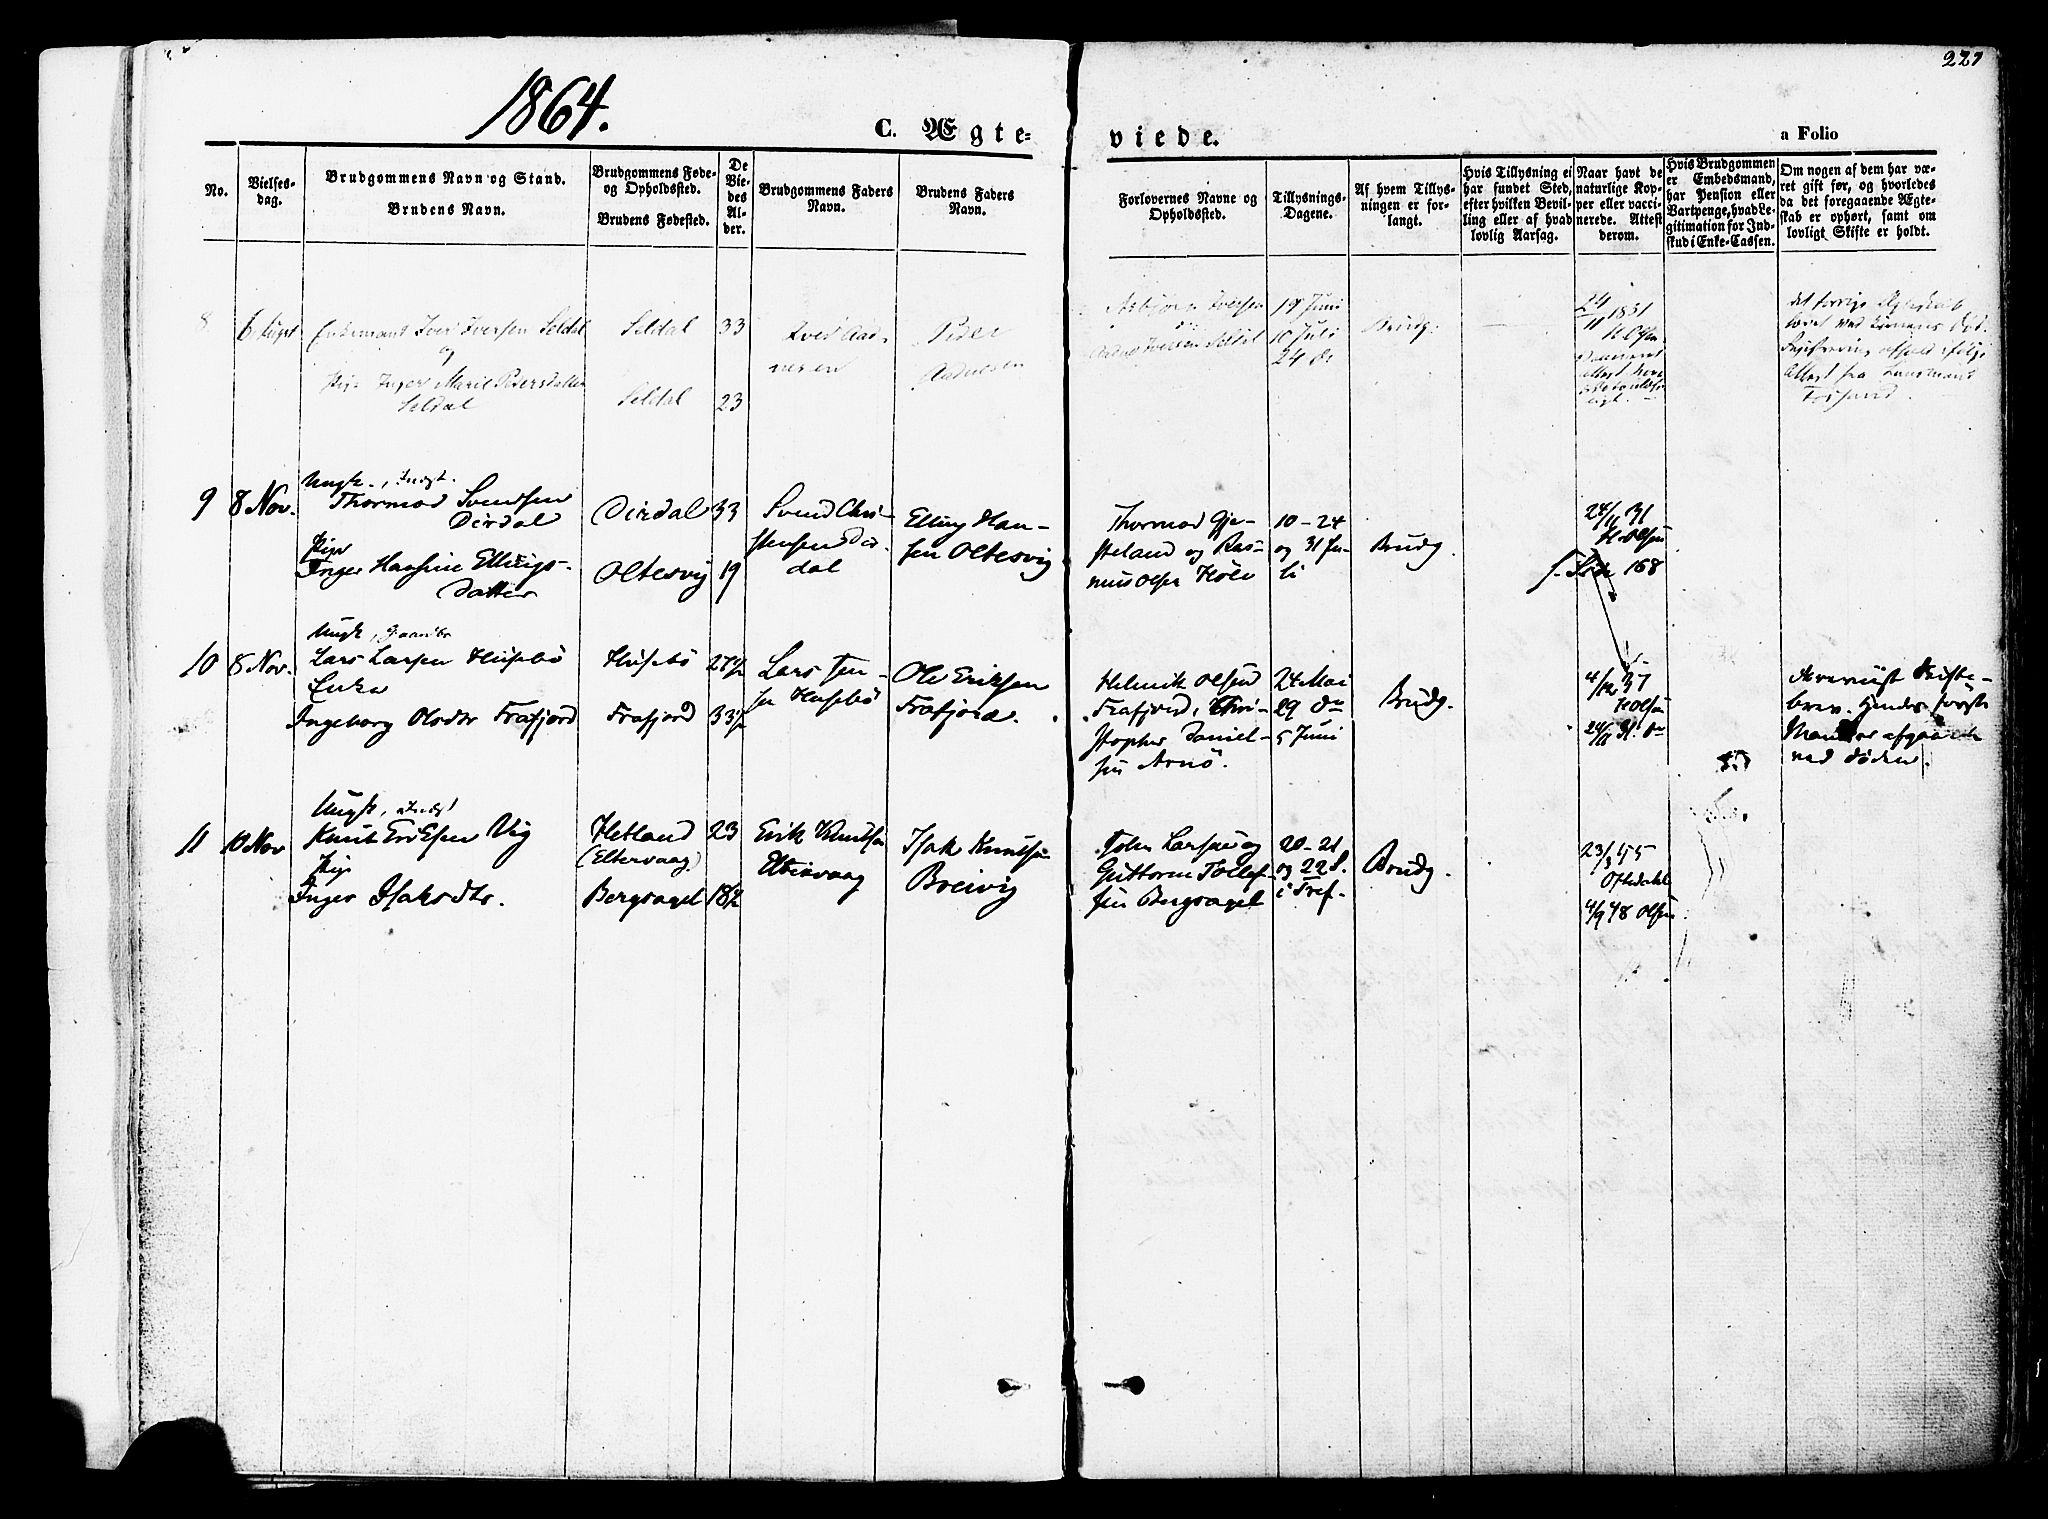 227
1864.
C. Ægte-
viede.
a Folio
No.
Vielses-
dag.
Brudgommens Navn og Stand.
Brudens Navn.
Brudgommens Føde-
og Opholdssted.
Brudens Fødested.
De
Vie-
des
Al-
der.
Brudgommens Faders
Navn.
Brudens Faders
Navn.
Forlovernes Navne og
Opholdssted.
Tillysnings-
Dagene.
Af hvem Tillys-
ningen er for-
langt.
Hvis Tillysning ei
har fundet Sted,
efter hvilken Bevil-
ling eller af hvad
lovlig Aarsag.
Naar havt de
naturlige Kop-
per eller vacci-
nerede. Attest
derom.
Hvis Brudgommen
er Embedsmand,
har Pension eller
Vartpenge, hvad Le-
gitimation for Ind-
skud i Enke-Cassen.
Om nogen af dem har væ-
ret gift før, og hvorledes
da det foregaaende Ægte-
skab er ophørt, samt om
lovligt Skifte er holdt.
8
Enkemand Iver Iversen Seldal
og
Pige Inger Marie Pedersdatter
Seldal
Seldal 33
Seldal 23
Iver Aad-
nesen
Peder
Aadnesen
Asbjørn Iversen
Iversen Seldal
19 Juni
10 Juli
24 do
Brudg.
24/11 1831
H. Olsen
9
8 Nov.
Ungk.
Thormod Svendsen
Dirdal
Pige
Inger Hansine Ellings-
Datter
Dirdal 33
Oltesvig 19
Svend Chri-
stensen Dir-
dal
Elling Han-
sen Oltesvig
Thormod Gje-
steland og Ras-
mus Olsen Hole
10 - 24
og 31 Ju-
li
Brudg.
24/11 31
H. Olsen
f. Side 168
10
8 Nov.
Ungk.
Lars Larsen Husebø
Enke
Ingeborg Olsdtr Frafjord
Husebø 27 1/2
Frafjord 33 1/2
Lars Jen-
sen Husebø
Ole Eriksen
Frafjord.
Helmik Olsen
Frafjord, Chri-
stopher Daniel-
sen Arnø.
24 Mai
29 do
5 Juni
Brudg.
4/12 37
H Olsen
24/11 31. do
Foreviist Skifte-
brev. Hendes første
Mand er afgaaet
ved Døden.
11
10 Nov
Ungk.
Knut Eriksen Vig
Pige
Inger Isaksdtr.
Hetland 23
(Eltervaag)
Bergsagel 18 1/2
Erik Knutsen
Eltervaag
Isak Knutsen
Breivig
John Larsen og
Guttorm Tollef-
sen Bergsagel
20 - 21
og 22 S.
i Tref.
Brudg.
23/3 55
Oftedahl
4/9 48 Olsen